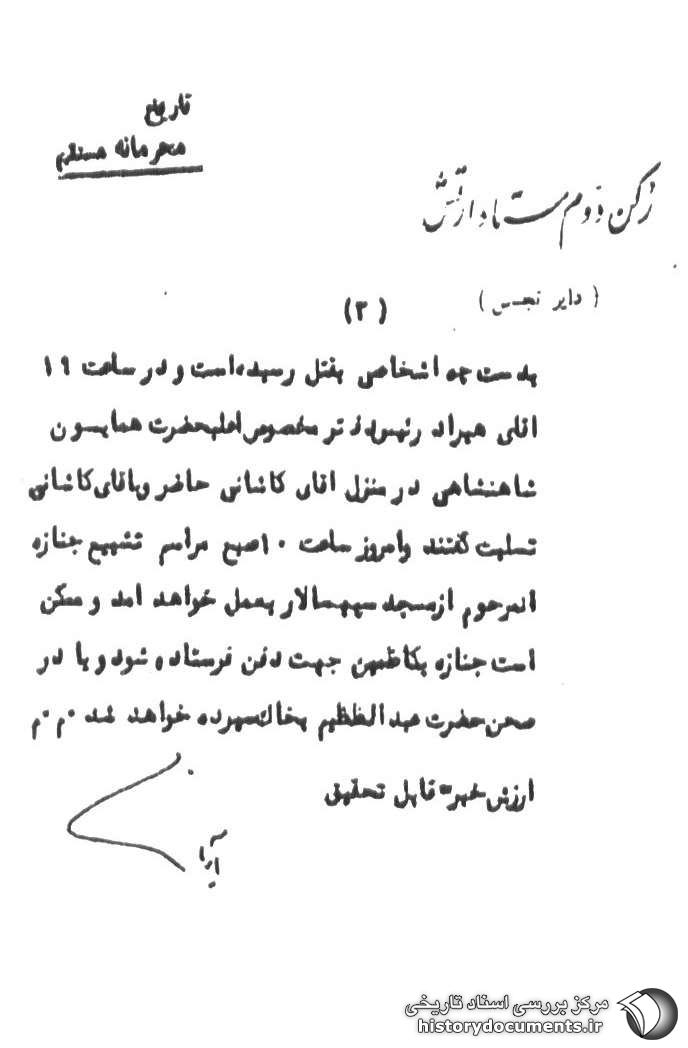 تاریخ
محرمانه مستقیم
رکن دوم ستاد ارتش
( دایر تجسس )
(۲)
بدست چه اشخاصی بقتل رسیده‌است و در ساعت ۱۹
اقای هیراد رئیس‌دفتر مخصوص اعلیحضرت همایون
شاهنشاهی در منزل اقای کاشانی حاضر وباقای‌کاشانی
تسلیت گفتند وامروز ساعت ۱۰صبح مراسم تشییع جنازه
انمرحوم ازمسجد سپهسالار بعمل خواهد امد و ممکن
است جنازه بکاظمین جهت دفن فرستاده شود و یا در
صحن حضرت عبدالظظیم بخاک‌سپرده خواهد شد ۰م ۰م
ارزش خبر= قابل تحقیق
مرکز بررسی اسناد تاریخی
historydocuments.ir